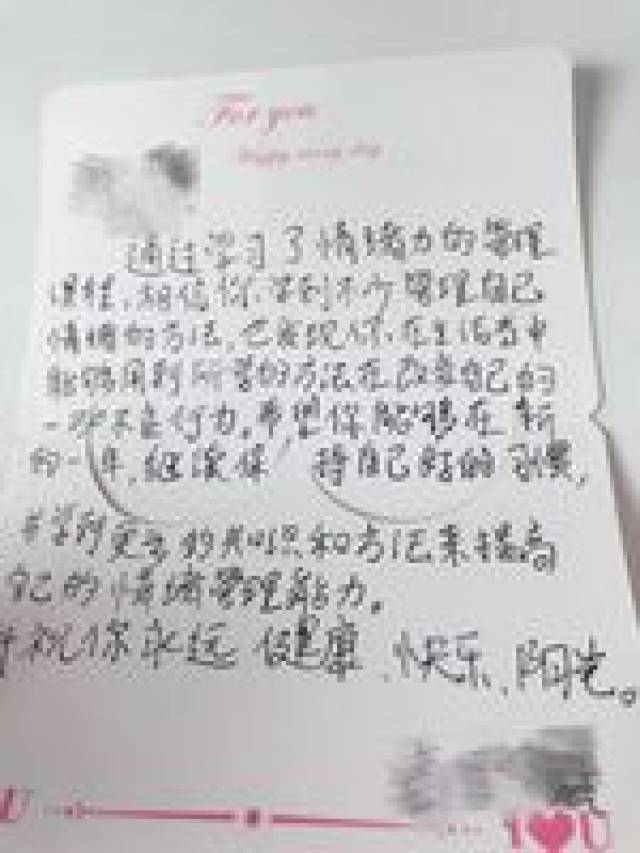 For you
Happy every day
通过学习了情绪力的管理
课程,相信你学到不少管理自己
情绪的方法,也发现你在生活当中
能够用到所学的方法在改变自己的
一些不良行为。希望你能够在新
的一年,继续保持自己好的习惯,
并学到更多的知识和方法来提高
自己的情绪管理能力。
并祝你永远健康、快乐、阳光。
U
I U